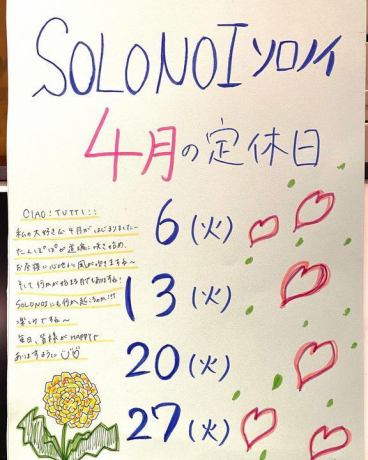 SOLONOI ソロノイ
4月の定休日
CIAO! TUTTI!!
私の大好きな4月がはじまりました〜
たんぽぽが道端に咲き始め、
お昼寝に心地よい風が吹きますね〜
そして何かが始まる月でもありますね!
SOLONOIにも何か起こるかも!!!
楽しみですね〜
毎日、皆様がHAPPYで
ありますように
6(火)
13(火)
20(火)
27(火)